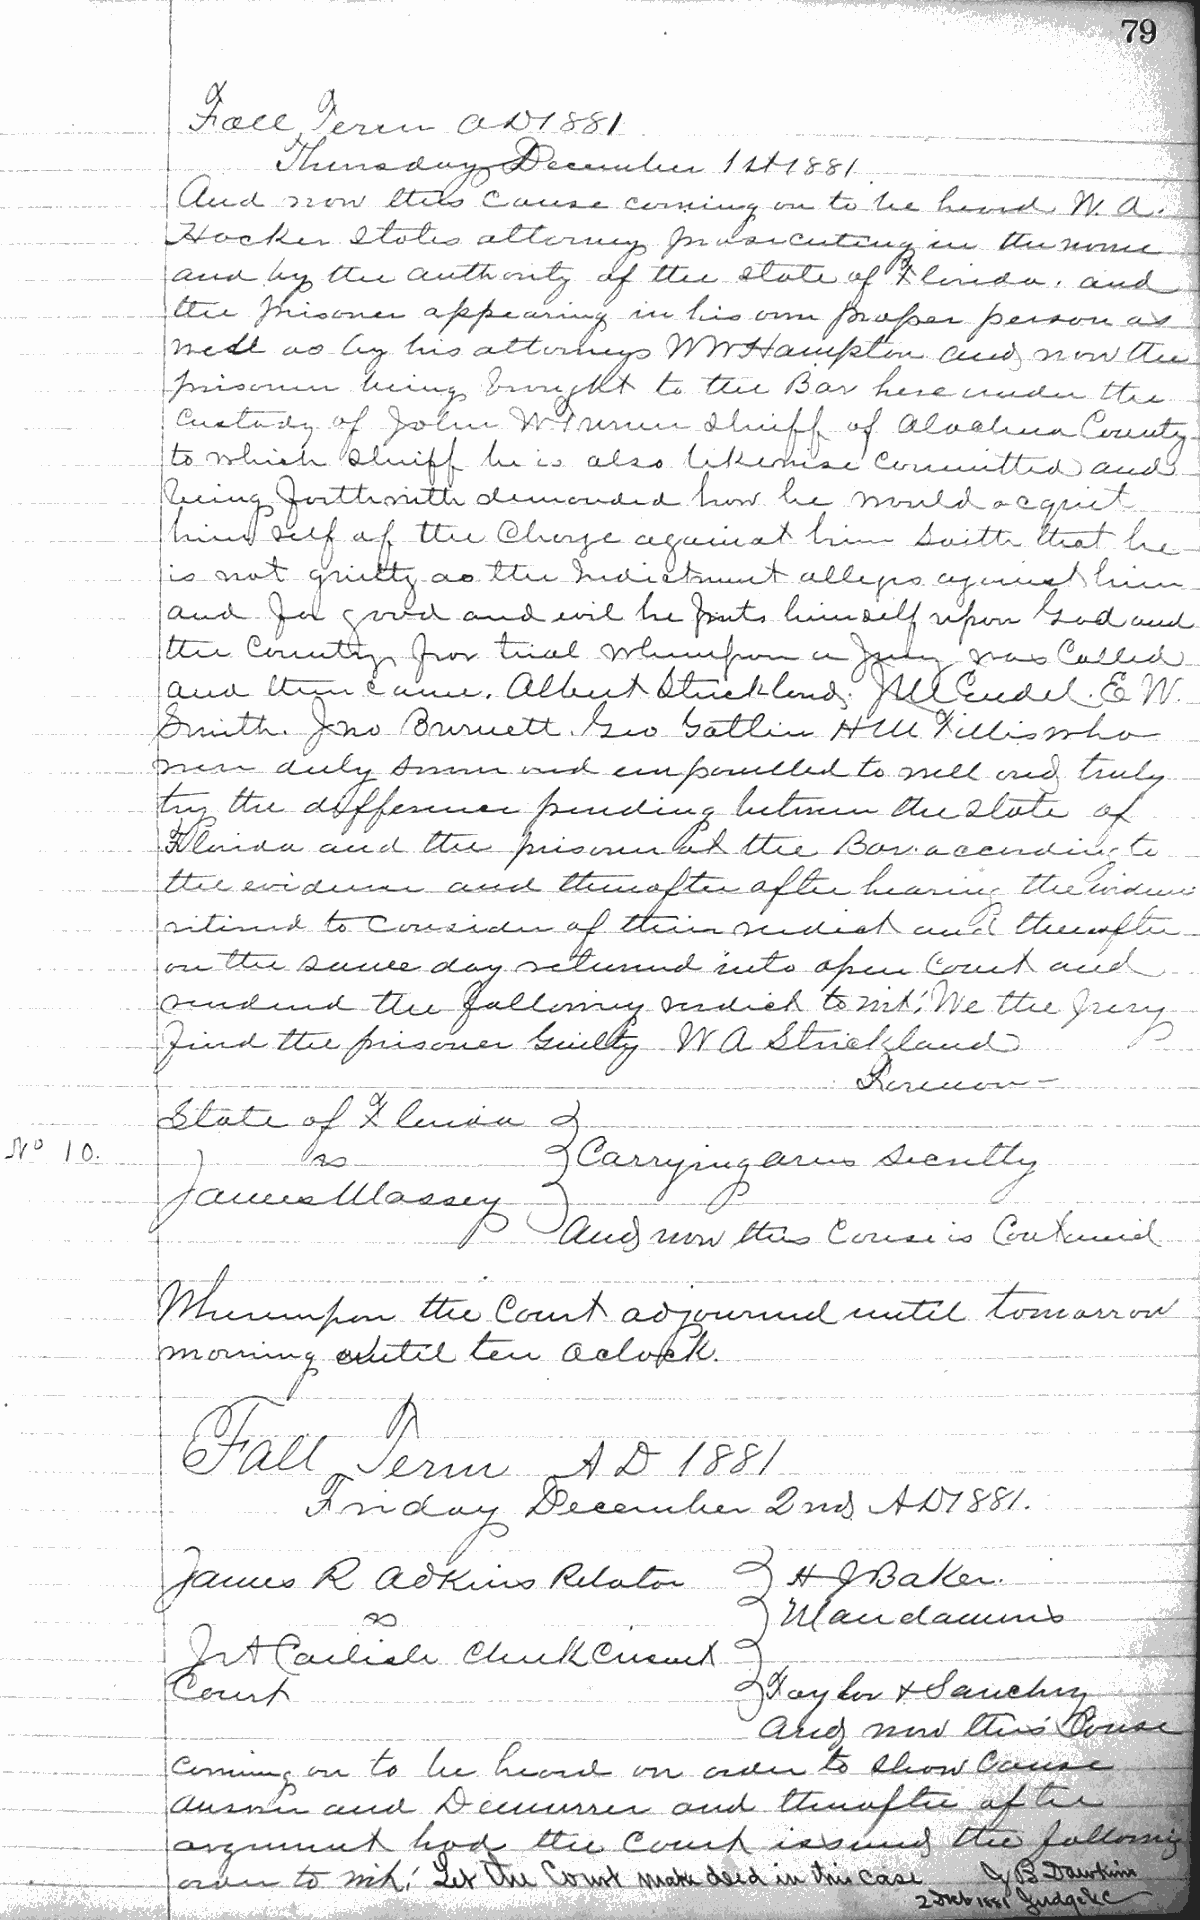 79
Fall Term AD 1881
Thursday December 1st 1881
And now this cause coming on to be heard W. A.
Hocker States attorney prosecuting in the name
and by the authority of the State of Florida. and
the prisoner appearing in his own proper person as
well as by his attorneys W W Hampton and now the
prisoner being brought to the Bar here under the
custody of John W Turner Sheriff of Alachua County
to which Sheriff he is also likewise committed and
being forthwith demanded how he would acquit
him self of the Charge against him saith that he
is not guilty as the Indictment alleges against him
and for good and evil he puts himself upon God and
the Country for trial whereupon a Jury was Called
and then came. Albert Strickland. J M Endel. E W.
Smith. Jno Burnett. Geo Gatlin H M Tillis who
were duly sworn and empanelled to well and truly
try the difference pending between the State of
Florida and the prisoner at the Bar. according to
the evidence and thereafter after hearing the evidence
retired to Consider of their verdict and thereafter
on the same day returned into open Court and
rendered the following verdict to wit; We the Jury
find the prisoner Guilty W A Strickland
Foreman -
State of Florida
No 10. vs Carrying arms secretly
James Massey
And now this Cause is Continued
Whereupon the Court adjourned until tomorrow
morning until ten Oclock.
Fall Term A D 1881
Friday December 2nd AD 1881.
James R Adkins Relator H J Baker.
vs Mandamus
J A Carlisle Clerk Circuit
Court Taylor & Sanchez
And now this Cause
coming on to be heard on order to show Cause
answer and Demurrer and thereafter after
argument had the Court issued the following
order to wit; Let the Court make deed in this case J B Dawkins
2 Dec 1881 Judge &C